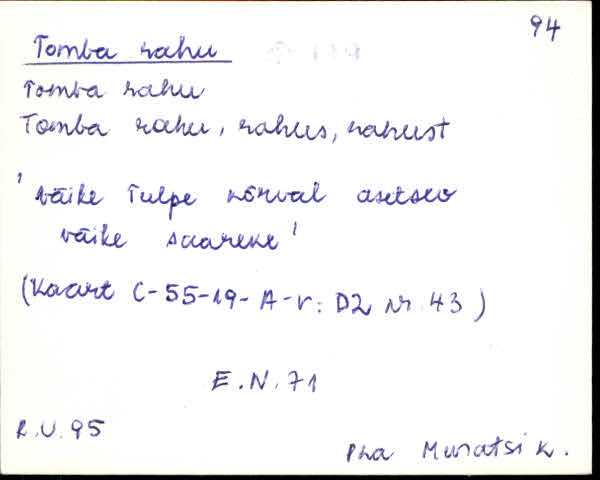 94
Tomba rahu
Tomba rahu
Tomba rahu, rahus, rahust
'väike Tulpe kõrval asetsev
väike saareke'
(Kaart C-55-19-A-v: D2 nr. 43)
E.N. 71
R.U. 95
Pha Muratsi k.